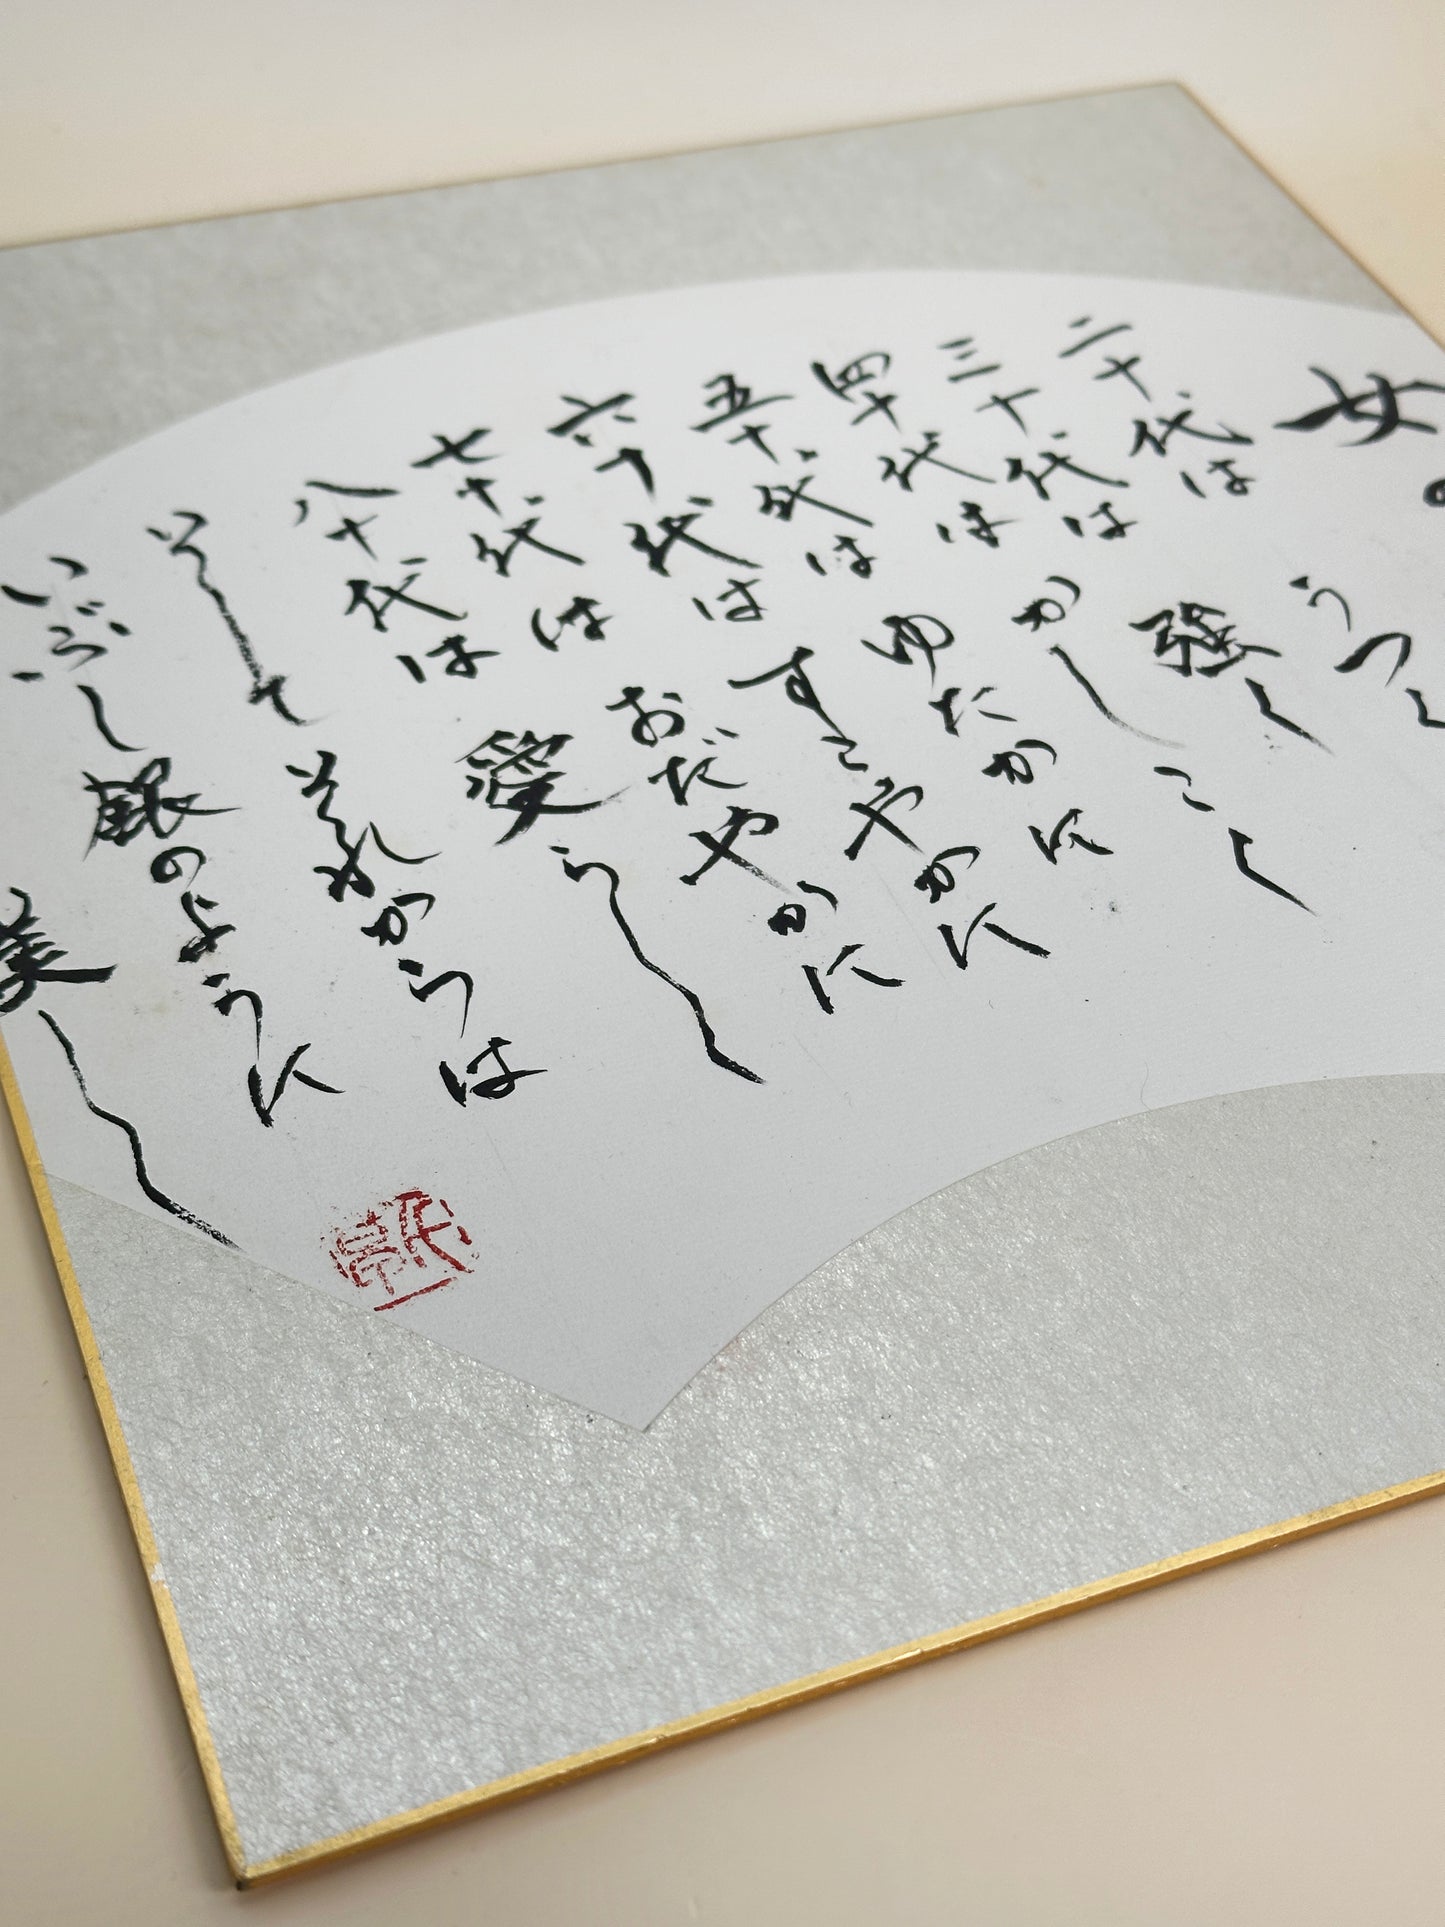 女の
二十代は うつく
三十代は 強く
四十代は かしこく
五十代は ゆたかに
六十代は すこやかに
七十代は おだやかに
八十代は 愛らしく
そして それからは
いぶし銀のように
美しく